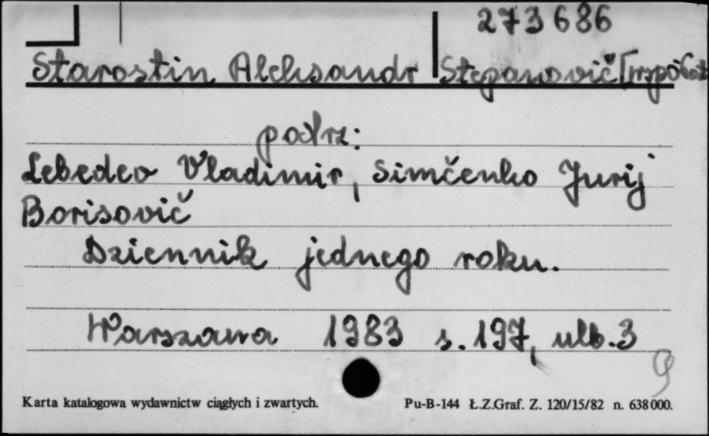 273686
Starostin Aleksandr Stepanovič [współaut
podrz:
Lebedev Vladimir, Simčenko Jurij
Borisovič
Dziennik jednego roku.
Warszawa 1983 s. 197, ulb. 3
Karta katalogowa wydawnictw ciągłych i zwartych. Pu-B-144 Ł.Z.Graf. Z. 120/15/82 n. 638000.